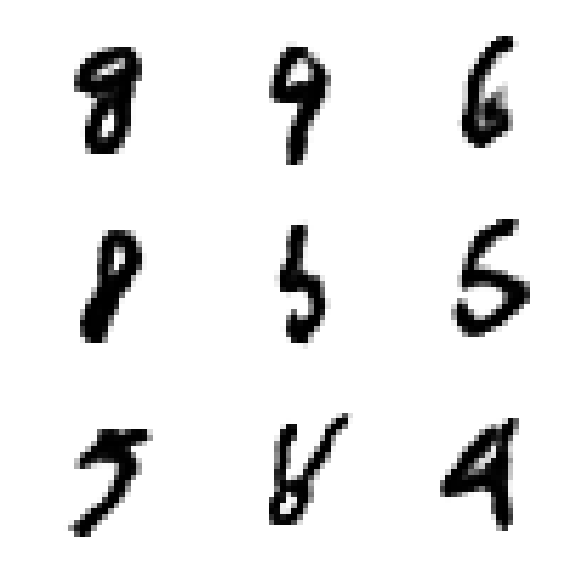 8 9 6
8 5 5
5 8 4